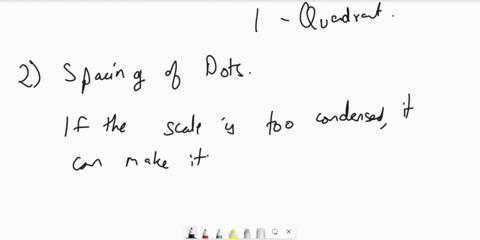 1 - Quadrant.
2) Spacing of Dots.
If the scale is too condensed, it
can make it